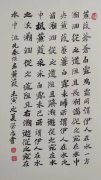 蒹葭蒼蒼白露為霜所謂伊人在水一方
溯洄從之道阻且長溯游從之宛在水中
央蒹葭萋萋白露未晞所謂伊人在水
之湄溯洄從之道阻且躋溯游從之宛在水
中坻蒹葭采采白露未已所謂伊人在水
之涘溯洄從之道阻且右溯游從之宛在水
中沚